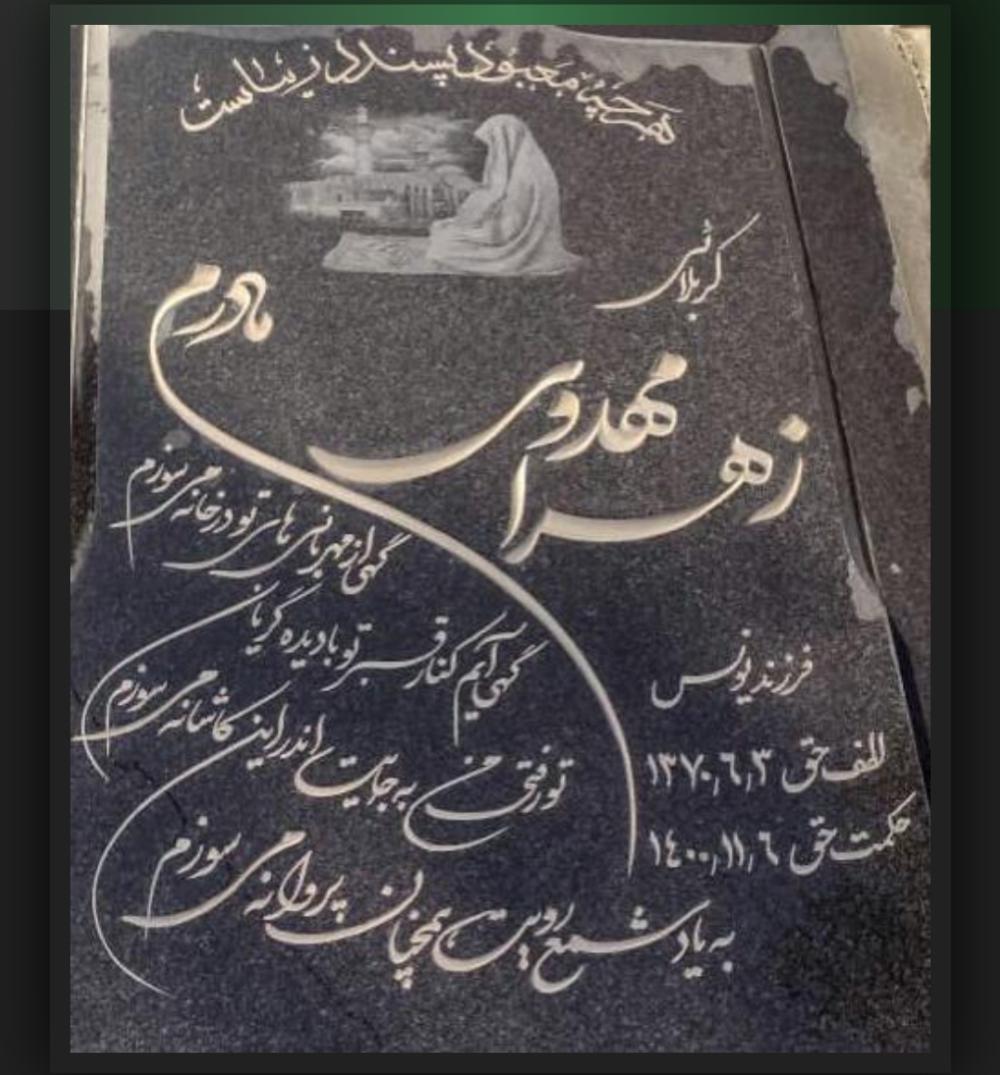 هر چه معبود پسندد زیباست
کربلائی
مادرم
زهرا مهدوی
گهی از مهربانی های تو در خانه می سوزم
گهی آیم کنار قبر تو با دیده گریان
تو رفتی من به جایت اندر این کاشانه می سوزم
به یاد شمع رویت همچنان پروانه می سوزم
فرزند یونس
لطف حق ۱۳۷۰,٦,۳
حکمت حق ۱٤۰۰,۱۱,٦